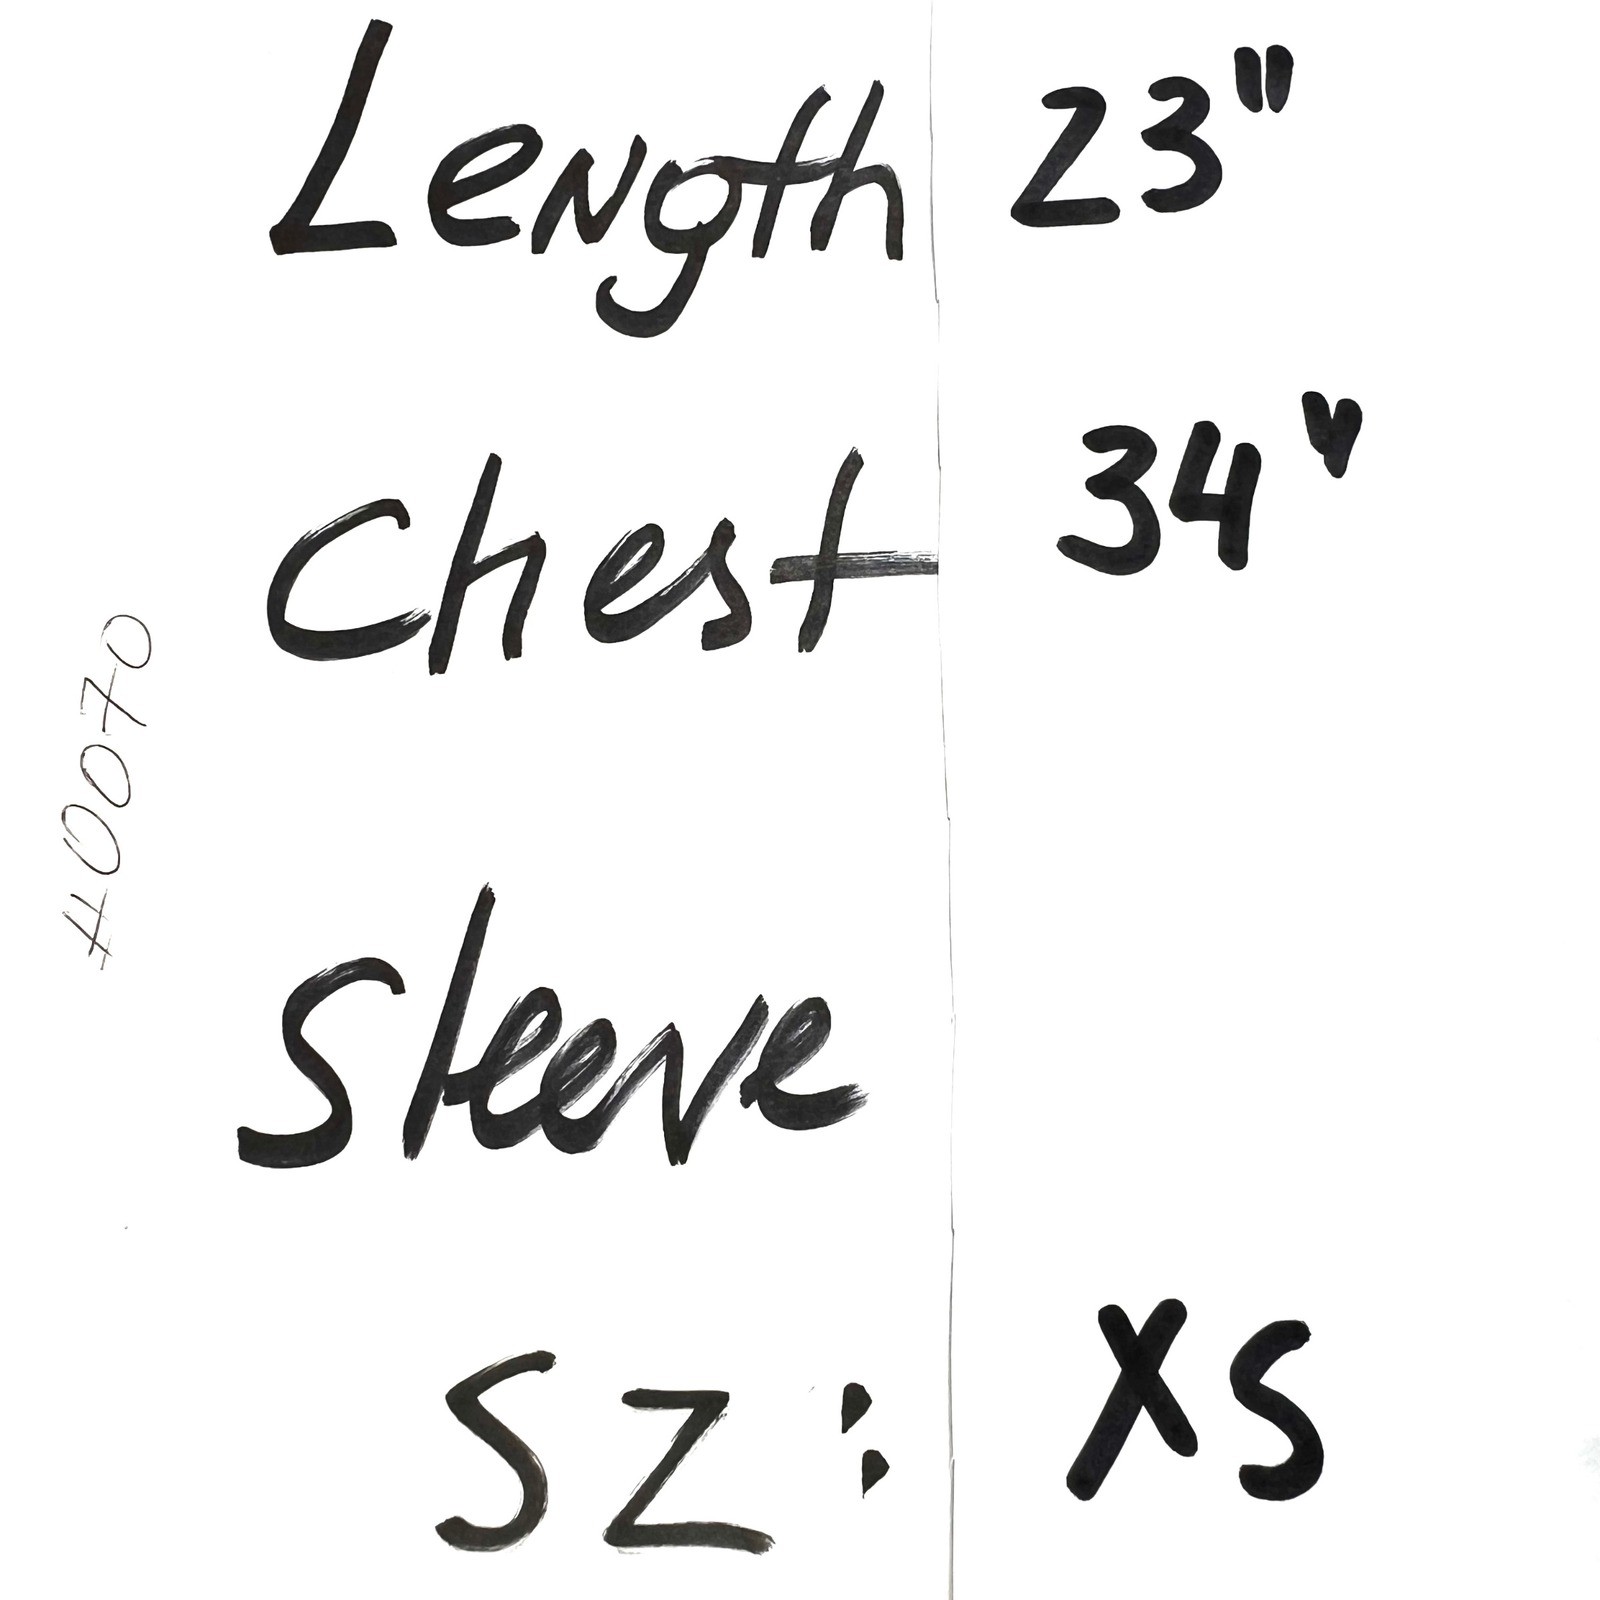 Length 23"
Chest 34"
Sleeve
SZ: XS
#0070